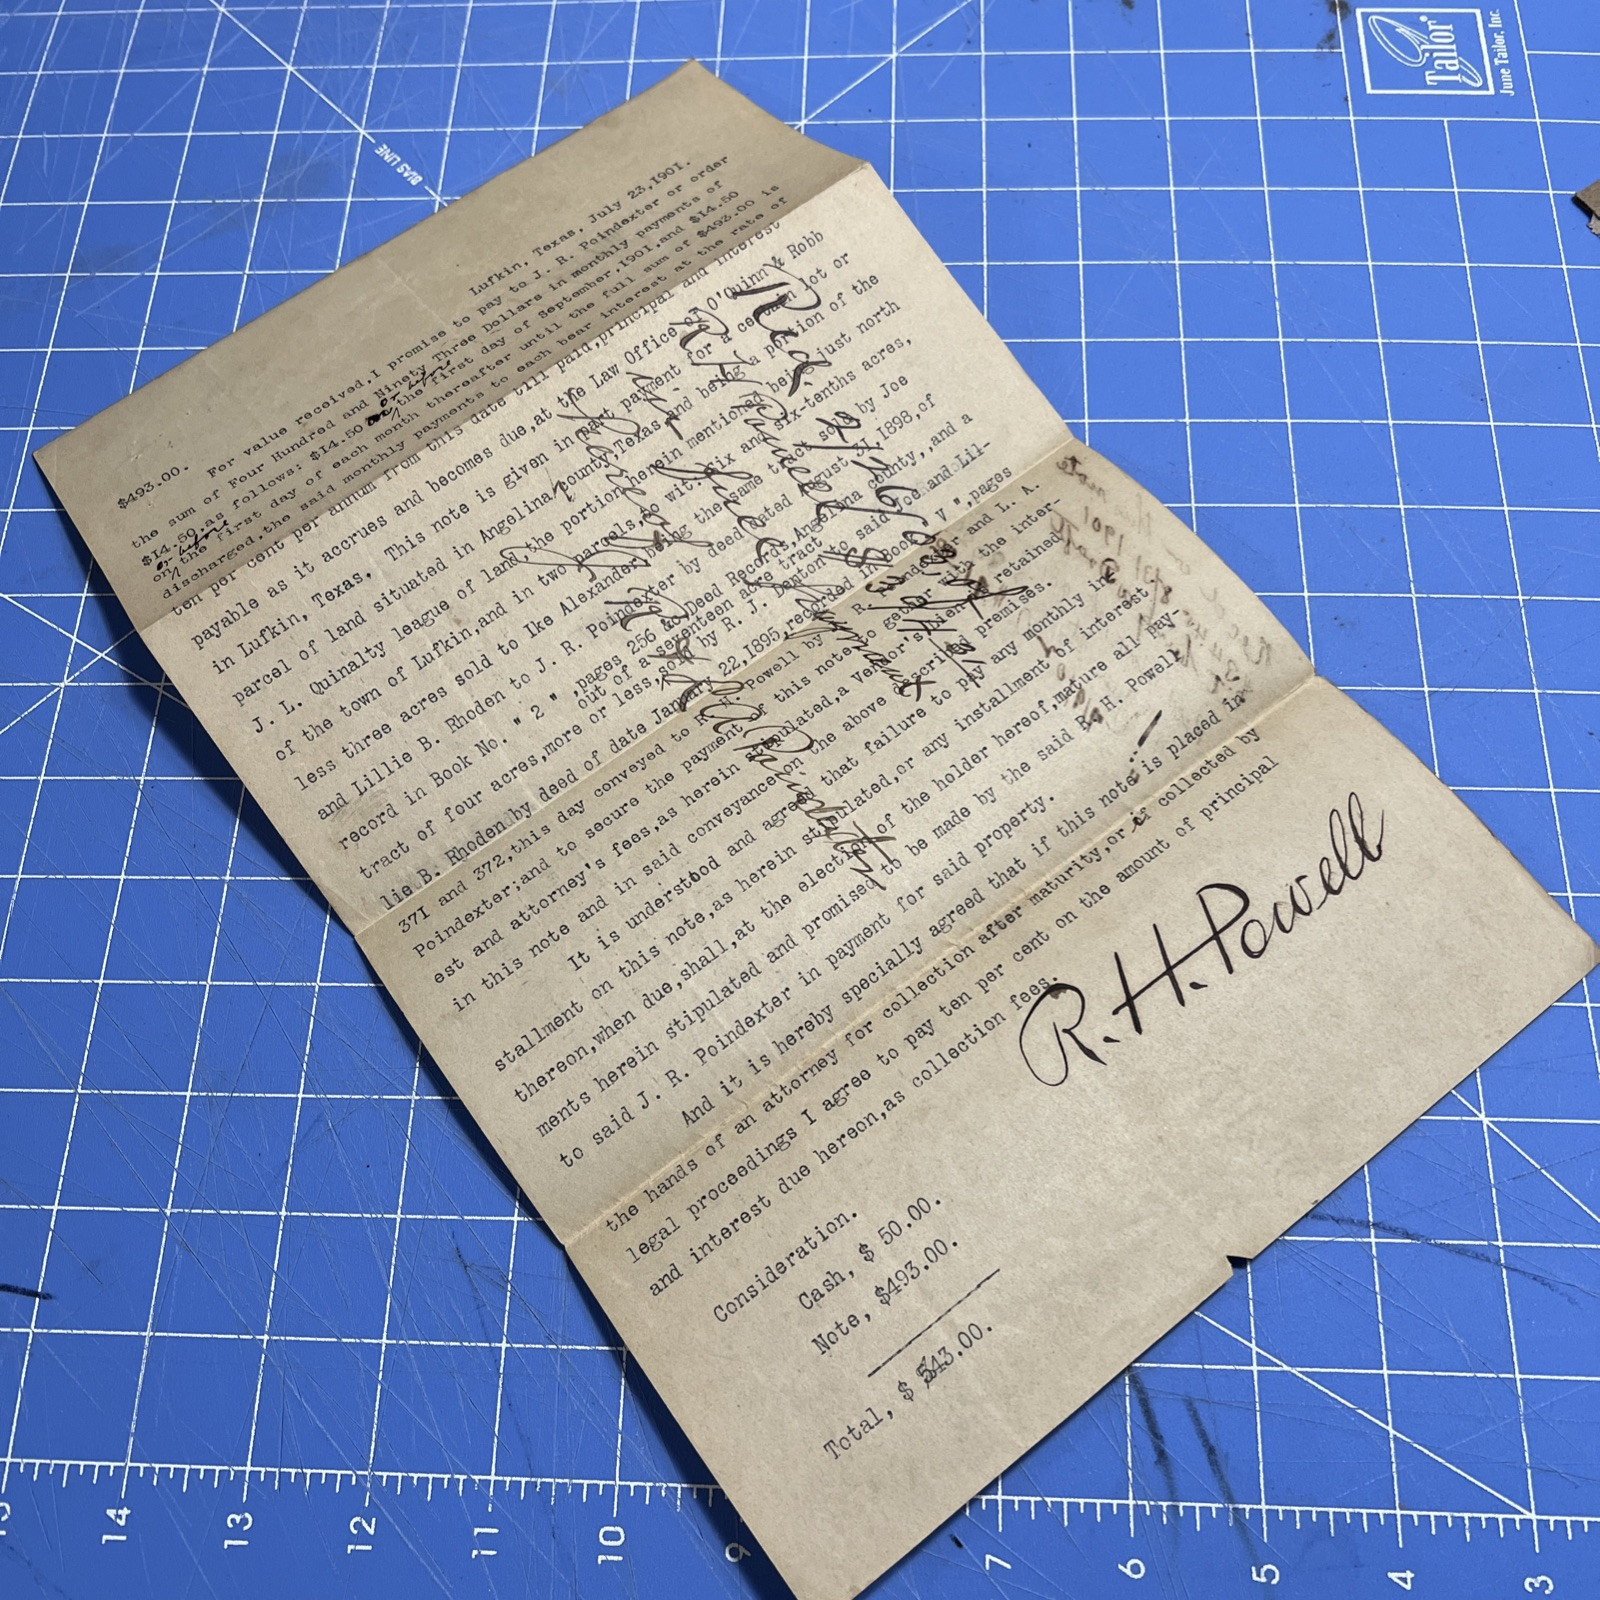 Lufkin, Texas, July 23,1901.
$493.00.
For value received,I promise to pay to J. R. Poindexter or order
the sum of Four Hundred and Ninety Three Dollars in monthly payments of
$14.50,as follows: $14.50 on or before the first day of September,1901,and $14.50
on or before the first day of each month thereafter until the full sum of $493.00 is
discharged,the said monthly payments to each bear interest at the rate of
ten per cent per annum from this date till paid,principal and interest
payable as it accrues and becomes due,at the Law Office of O'Quinn & Robb
in Lufkin, Texas. This note is given in part payment for a certain lot or
parcel of land situated in Angelina county,Texas,and being a portion of the
J. L. Quinalty league of land,the portion herein mentioned being just north
of the town of Lufkin,and in two parcels,to wit: Six and six-tenths acres,
less three acres sold to Ike Alexander,being the same tract sold by Joe
and Lillie B. Rhoden to J. R. Poindexter by deed dated August 31,1898,of
record in Book No. " 2 " ,pages 256 &c,Deed Records,Angelina county,,and a
tract of four acres,more or less, out of a seventeen acre tract sold by R. J. Denton to said Joe and Lil-
lie B. Rhoden by deed of date January 22,1895,recorded in Book " V ",pages
371 and 372,this day conveyed to R. H. Powell by J. R. Poindexter and L. A.
Poindexter;and to secure the payment of this note,together with the inter-
est and attorney's fees,as herein stipulated,a Vendor's Lien is retained
in this note and in said conveyance on the above described premises.
It is understood and agreed that failure to pay any monthly in-
stallment on this note,as herein stipulated,or any installment of interest
thereon,when due,shall,at the election of the holder hereof,mature all pay-
ments herein stipulated and promised to be made by the said R. H. Powell
to said J. R. Poindexter in payment for said property.
And it is hereby specially agreed that if this note is placed in
the hands of an attorney for collection after maturity,or if collected by
legal proceedings I agree to pay ten per cent on the amount of principal
and interest due hereon,as collection fees.
R. H. Powell
Consideration.
Cash, $ 50.00.
Note, $493.00.
Total, $ 543.00.
R. H. Powell
in full payment
Poindexter
BIAS LINE
Tailor
June Tailor, Inc.
14
13
12
11
10
9
7
6
5
4
3